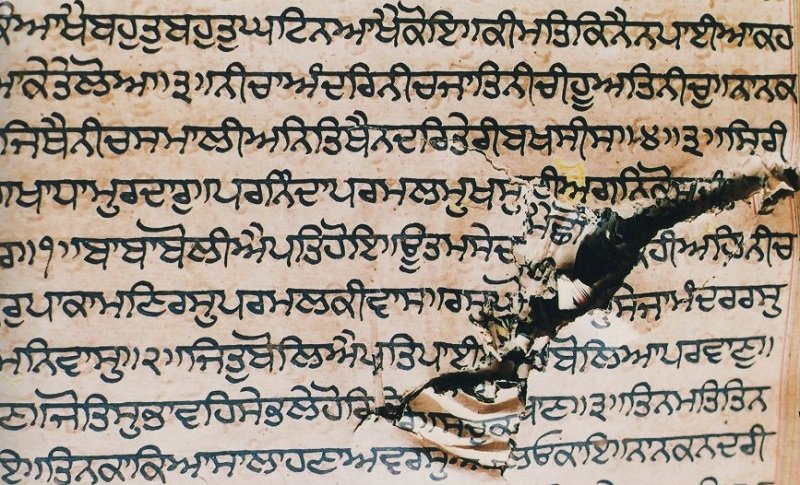 ਕੋਆਖੈਬਹੁਤੁਬਹੁਤੁਘਟਿਨਆਖੈਕੋਇ॥ਕੀਮਤਿਕਿਨੈਨਪਾਈਆਕਹ
ਆਕੇਤੇਲੋਅ॥੩॥ਨੀਚਾਅੰਦਰਿਨੀਚਜਾਤਿਨੀਚੀਹੂਅਤਿਨੀਚੁ॥ਨਾਨਕ
ਜਿਥੈਨੀਚਸਮਾਲੀਅਨਿਤਿਥੈਨਦਰਿਤੇਰੀਬਖਸੀਸ॥੪॥੩॥ਸਿਰੀ
ਖਾਧਾਮੁਰਦਾਰੁ॥ਪਰਨਿੰਦਾਪਰਮਲੁਮੁਖਸੁ ਅਗਨਿ
॥੧॥ਬਾਬਾਬੋਲੀਐਪਤਿਹੋਇ॥ਊਤਮਸੇਦ ਹੀਅਹਿਨੀਚ
ਰੁਪਾਕਾਮਣਿਰਸੁਪਰਮਲਕੀਵਾਸੁ॥ਰਸੁ ਸੇਜਾਮੰਦਰਰਸੁ
ਮਨਿਵਾਸੁ॥੨॥ਜਿਤੁਬੋਲਿਐਪਤਿਪਾਈ ਬੋਲਿਆਪਰਵਾਣੁ॥
ਣ॥ਜੋਤਿਸੁਭਾਵਹਿਸੇਭਲੇਹੋਰਿ ਖਾਣ॥੩॥ਤਿਨਮਤਿਤਿਨ
ਇ॥ਤਿਨਕਾਕਿਆਸਾਲਾਹਣਾਅਵਰਸੁ ਕਾਇ॥ਨਾਨਕਨਦਰੀ